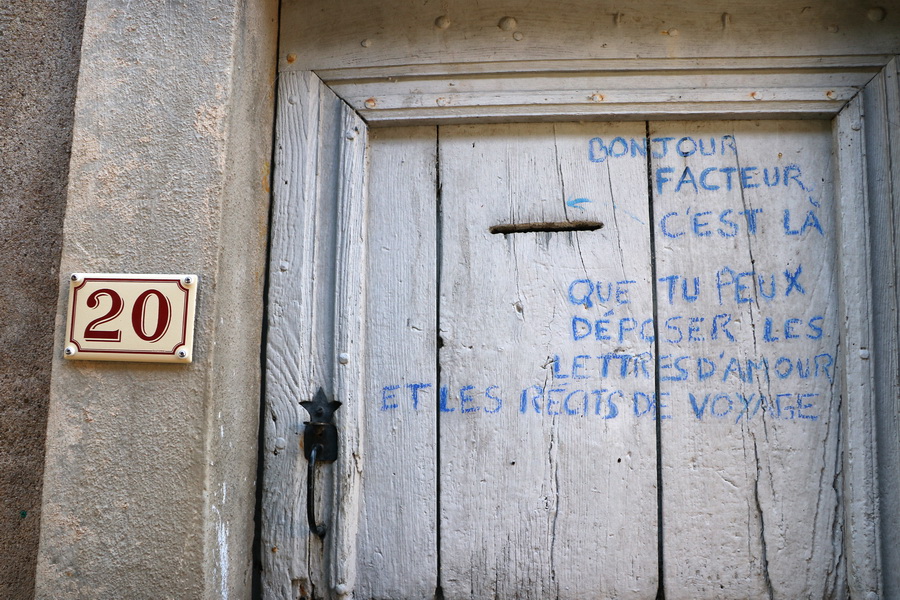 20
BONJOUR
FACTEUR
C'EST LÀ
QUE TU PEUX
DÉPOSER LES
LETTRES D'AMOUR
ET LES RÉCITS DE VOYAGE